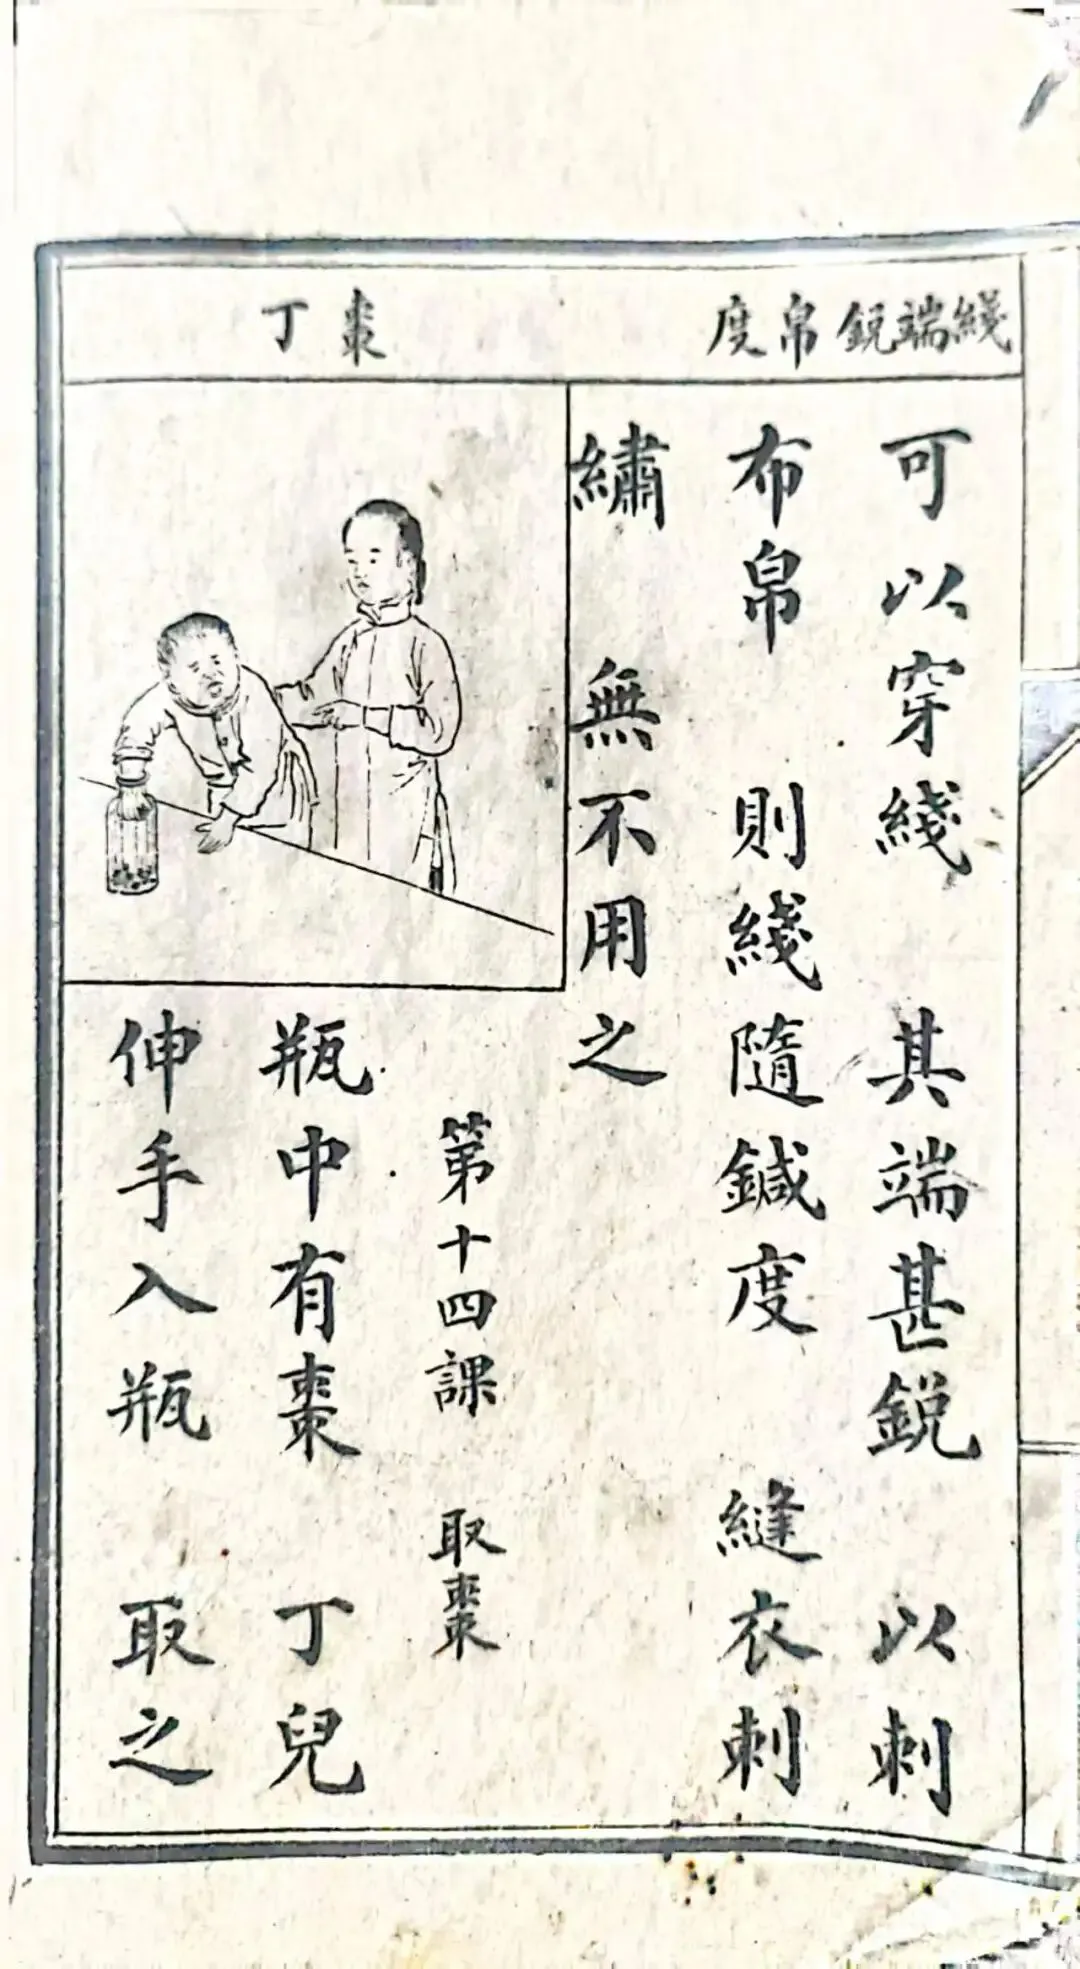 綫端銳帛度
棗丁
可以穿綫 其端甚銳 以刺
布帛 則綫隨鍼度 縫衣刺
繡 無不用之
第十四課 取棗
瓶中有棗 丁兒
伸手入瓶 取之